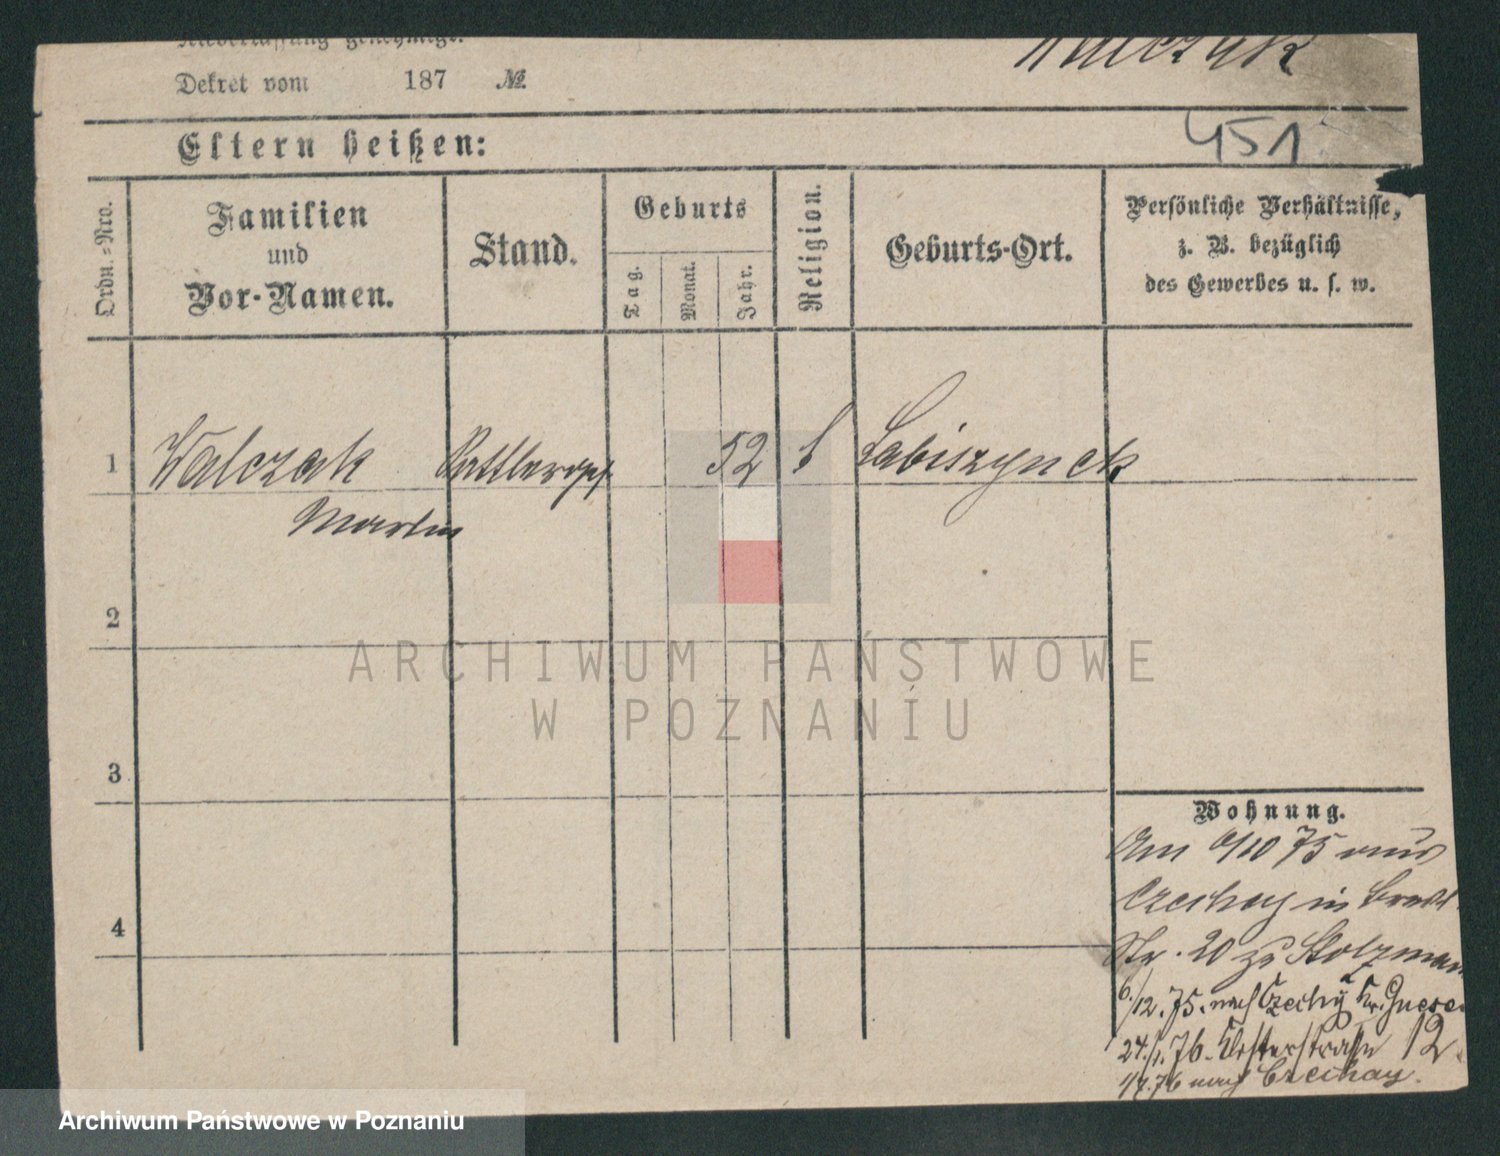 Niederlassung genehmigt.
Dekret vom 187 №
Walczak
451
Eltern heißen:
Ordn.-Nro.
Familien
und
Vor-Namen.
Stand.
Geburts
Tag.
Monat.
Jahr.
Religion.
Geburts-Ort.
Persönliche Verhältnisse,
z. B. bezüglich
des Gewerbes u. s. w.
1 Walczak 52 Labiszynek
Martin
2
3
4
Wohnung.
Am 6/10 75 aus
Czechay in
Str. 20 zu Stolzman
6./12. 75. nach Czechy Kr. Gnese
24./1. 76. Klosterstraße 12.
76 nach Czechay.
ARCHIWUM PAŃSTWOWE
W POZNANIU
Archiwum Państwowe w Poznaniu